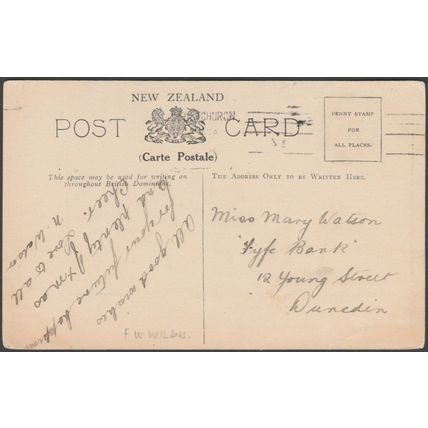 NEW ZEALAND
CHURCH
POST CARD
(Carte Postale)
PENNY STAMP
FOR
ALL PLACES.
This space may be used for writing on
throughout British Dominions.
THE ADDRESS ONLY TO BE WRITTEN HERE.
All good wishes
for your future happiness
and plenty of Xmas
Cheer.
Love to all
Miss Mary Watson
"Fyfe Bank"
12 Young Street
Dunedin
F W WILSON